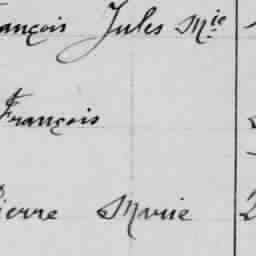 ançois Jules Mie
François
ierre Marie